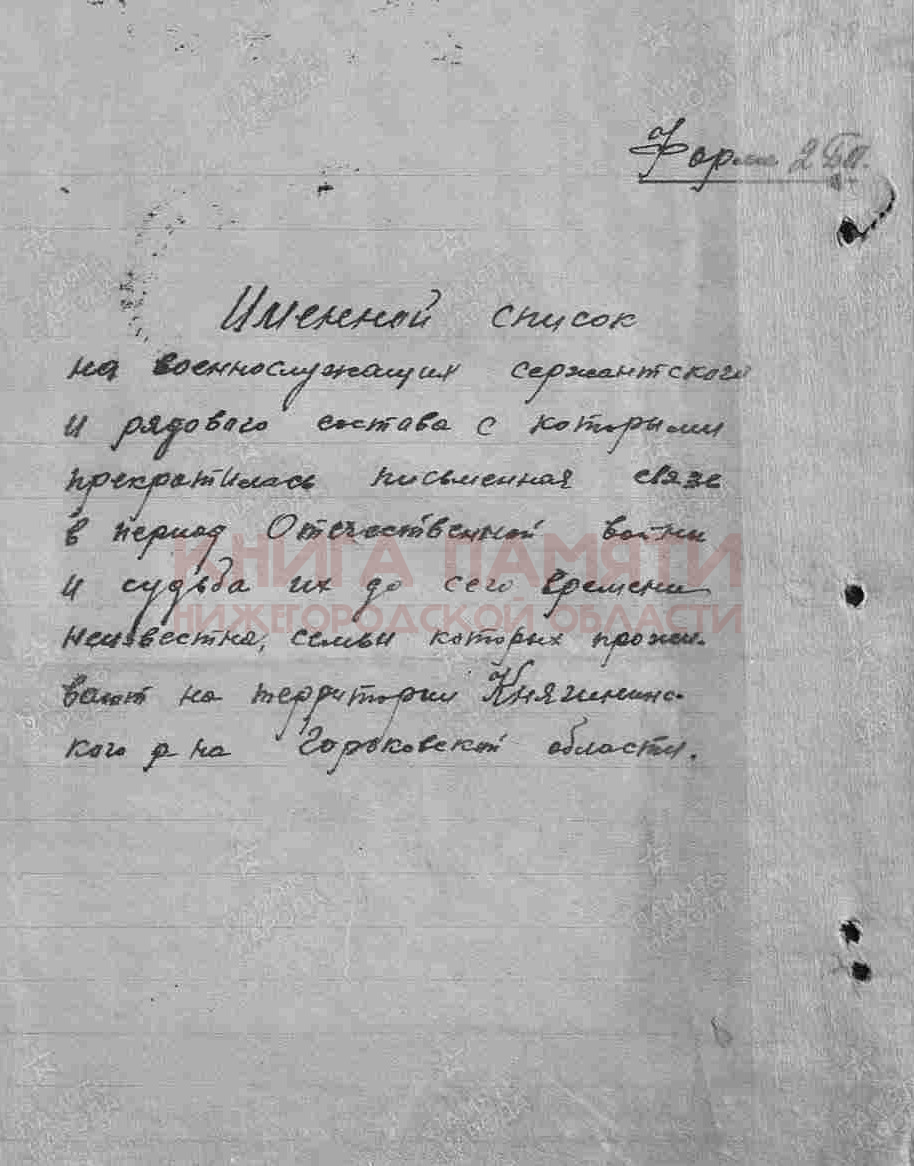 Форма 2 БП.
Именной список
на военнослужащих сержантского
и рядового состава с которыми
прекратилась письменная связь
в период Отечественной войны
и судьба их до сего времени
неизвестна, семьи которых прожи-
вают на территории Княгининс-
кого р-на Горьковской области.
КНИГА ПАМЯТИ
НИЖЕГОРОДСКОЙ ОБЛАСТИ